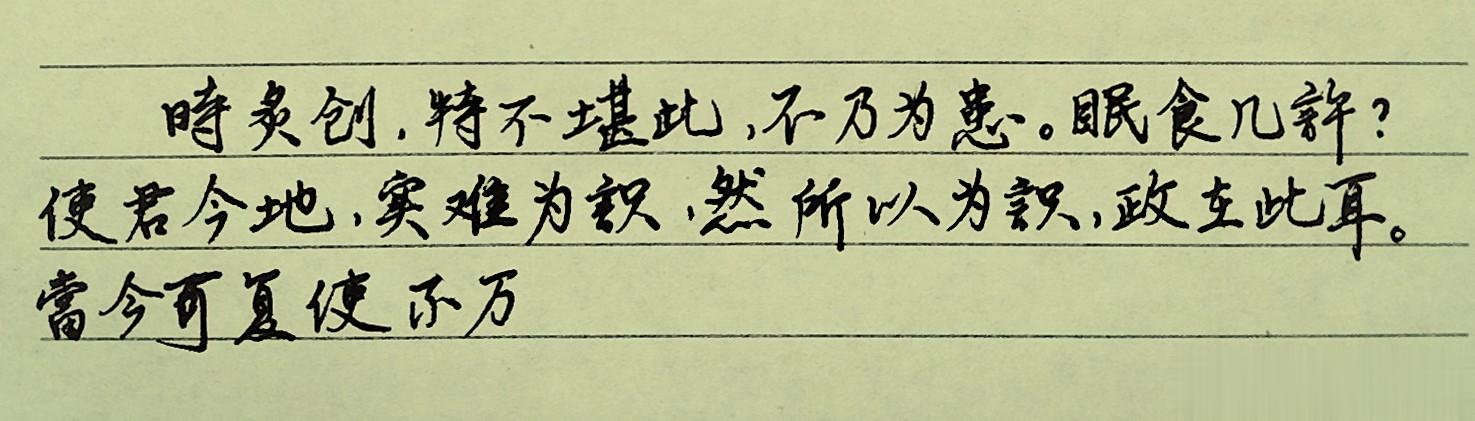 時炙创，特不堪此，不乃为患。眠食几許？
使君今地，实难为識，然所以为識，政在此耳。
當今可复使不万